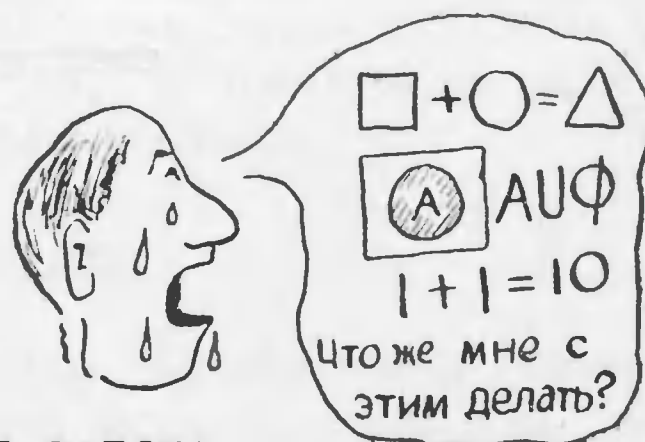 □ + ○ = △
A A∪∅
1 + 1 = 10
Что же мне с
этим делать?